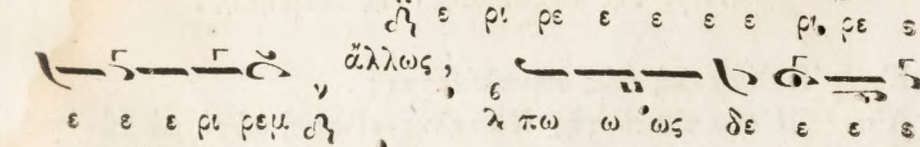 ε ρι ρε ε ε ε ε ρι, ρε ε
ἄλλως,
ε ε ε ρι ρεμ
πω ω ως δε ε ε ε